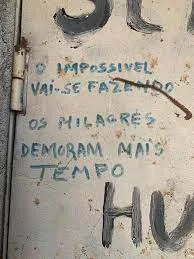 O IMPOSSIVEL
VAI-SE FAZENDO
OS MILAGRES
DEMORAM MAIS
TEMPO
HU